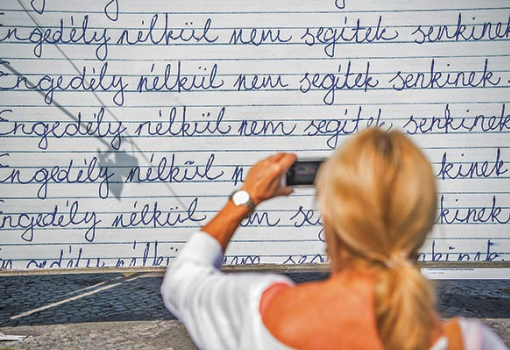 Engedély nélkül nem segítek senkinek
Engedély nélkül nem segítek senkinek.
Engedély nélkül nem segítek senkinek
Engedély nélkül kinek.
Engedély nélkül segítek kinek
Engedély nélkül nem senkinek